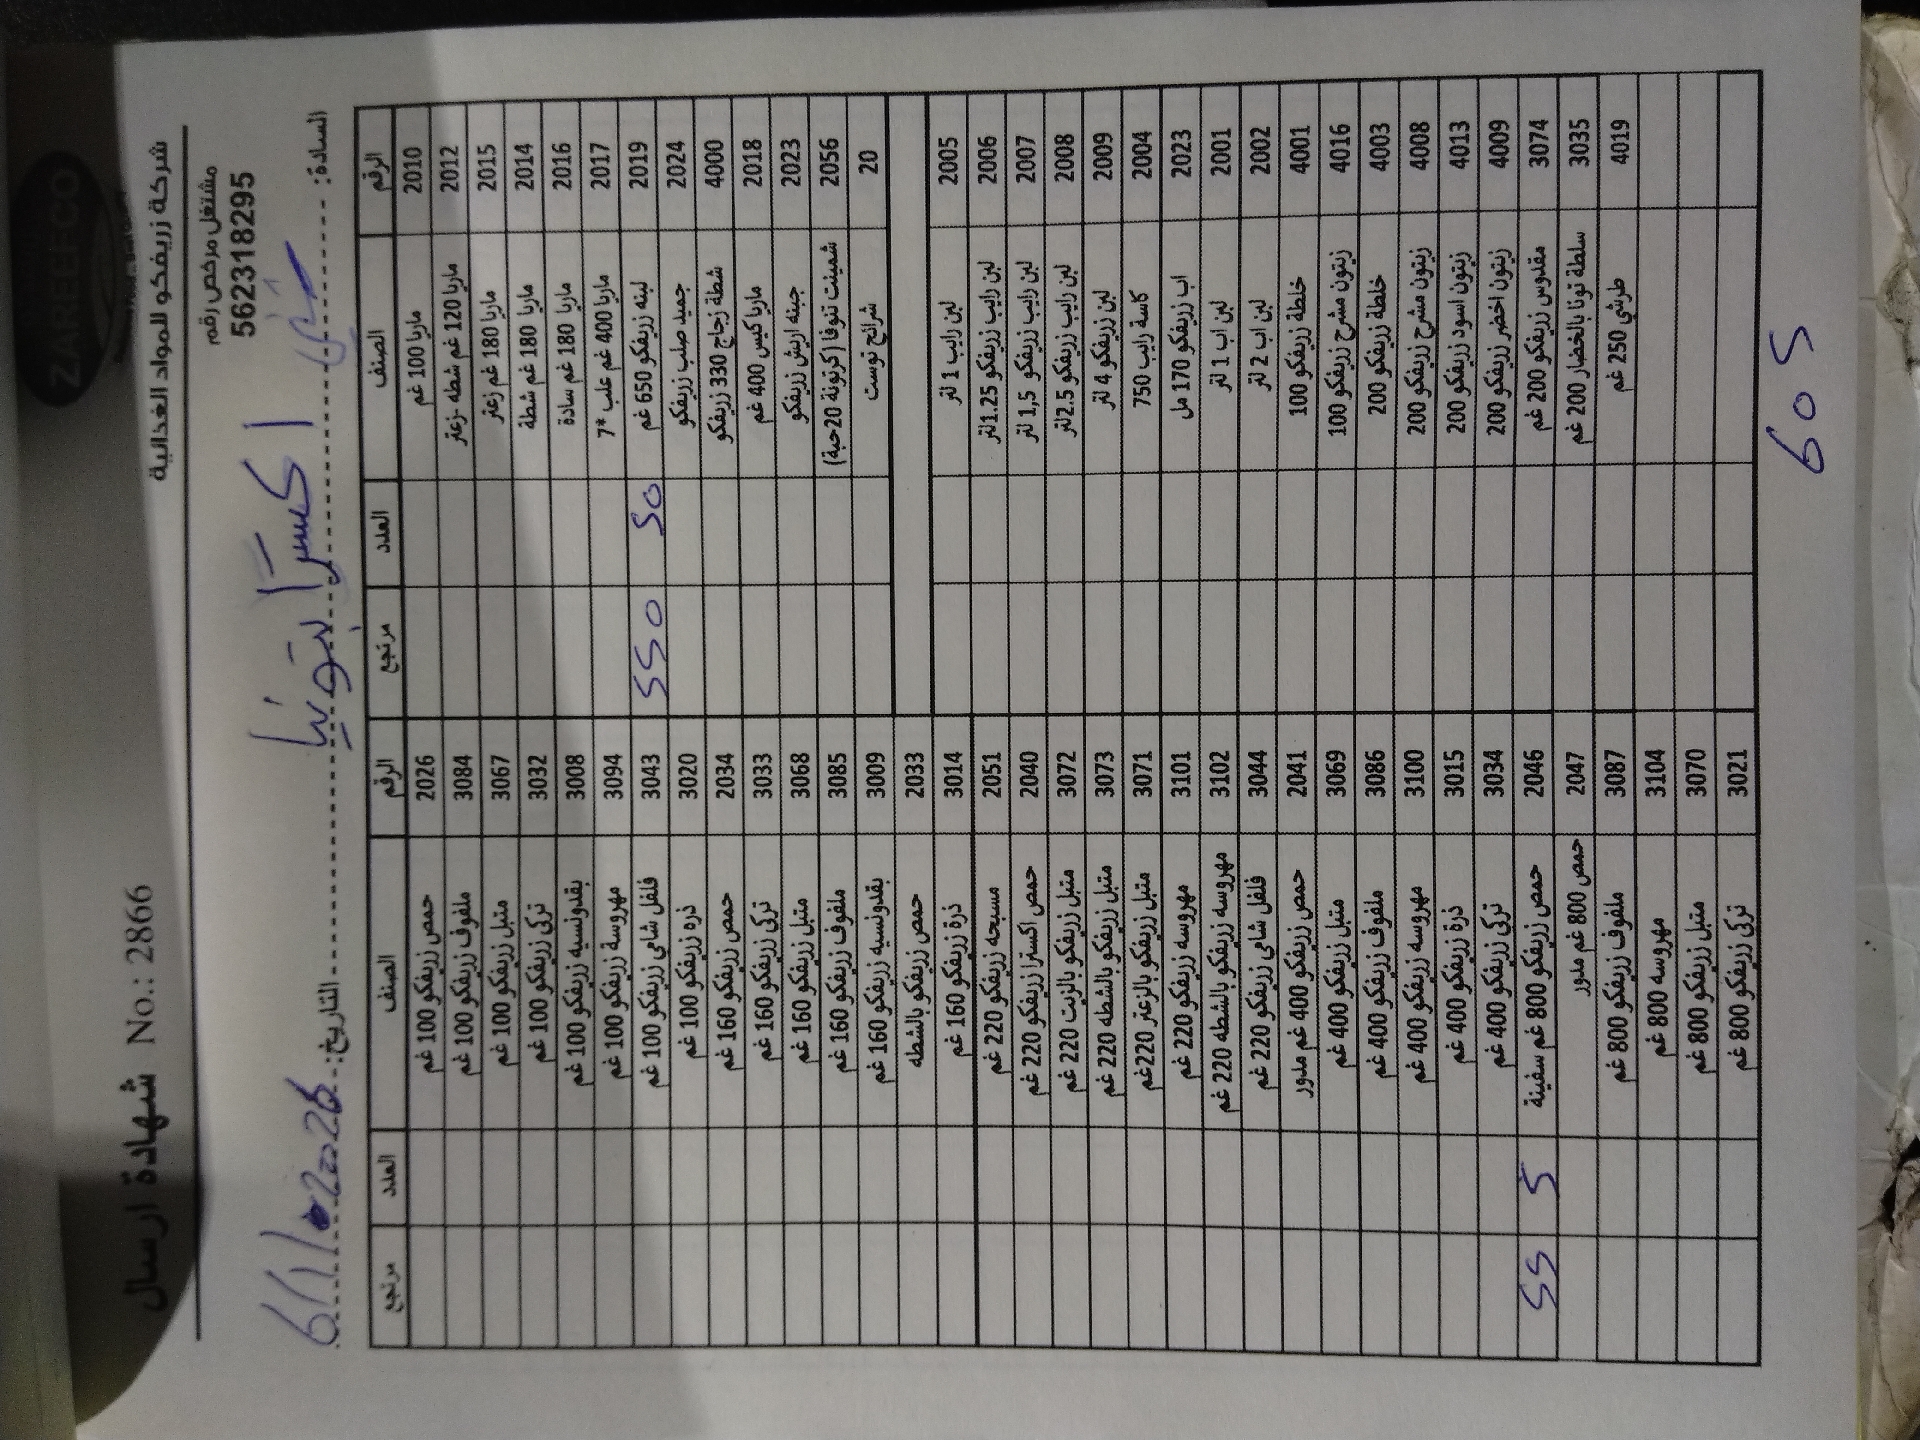 ZAREEFCO
شركة زريفكو للمواد الغذائية
مشتغل مرخص رقم
562318295
شهادة ارسال No.: 2866
السادة: اكسترا
التاريخ:
الرقم الصنف العدد مرتجع الرقم الصنف العدد مرتجع
2010 ماريا 100 غم 2026 حمص زريفكو 100 غم
2012 ماريا 120 غم شطه -زعتر 3084 ملفوف زريفكو 100 غم
2015 ماريا 180 غم زعتر 3067 متبل زريفكو 100 غم
2014 ماريا 180 غم شطة 3032 تركي زريفكو 100 غم
2016 ماريا 180 غم سادة 3008 بقدونسيه زريفكو 100 غم
2017 ماريا 400 غم علب *7 3094 مهروسة زريفكو 100 غم
2019 لبنه زريفكو 650 غم 50 550 3043 فلفل شامي زريفكو 100 غم
2024 جميد صلب زريفكو 3020 ذره زريفكو 100 غم
4000 شطة زجاج 330 زريفكو 2034 حمص زريفكو 160 غم
2018 ماريا كيس 400 غم 3033 تركي زريفكو 160 غم
2023 جبنه اريش زريفكو 3068 متبل زريفكو 160 غم
2056 شمينت تنوفا (كرتونة 20حبة) 3085 ملفوف زريفكو 160 غم
20 شرائح توست 3009 بقدونسيه زريفكو 160 غم
2033 حمص زريفكو بالشطه
2005 لبن رايب 1 لتر 3014 ذرة زريفكو 160 غم
2006 لبن رايب زريفكو 1.25لتر 2051 مسبحه زريفكو 220 غم
2007 لبن رايب زريفكو 1,5 لتر 2040 حمص اكسترا زريفكو 220 غم
2008 لبن رايب زريفكو 2.5لتر 3072 متبل زريفكو بالزيت 220 غم
2009 لبن زريفكو 4 لتر 3073 متبل زريفكو بالشطه 220 غم
2004 كاسة رايب 750 3071 متبل زريفكو بالزعتر 220غم
2023 اب زريفكو 170 مل 3101 مهروسه زريفكو 220 غم
2001 لبن اب 1 لتر 3102 مهروسه زريفكو بالشطه 220 غم
2002 لبن اب 2 لتر 3044 فلفل شامي زريفكو 220 غم
4001 خلطة زريفكو 100 2041 حمص زريفكو 400 غم مدور
4016 زيتون مشرح زريفكو 100 3069 متبل زريفكو 400 غم
4003 خلطة زريفكو 200 3086 ملفوف زريفكو 400 غم
4008 زيتون مشرح زريفكو 200 3100 مهروسه زريفكو 400 غم
4013 زيتون اسود زريفكو 200 3015 ذرة زريفكو 400 غم
4009 زيتون اخضر زريفكو 200 3034 تركي زريفكو 400 غم
3074 مقدوس زريفكو 200 غم 2046 حمص زريفكو 800 غم سفينة 5 55
3035 سلطة تونا بالخضار 200 غم 2047 حمص 800 غم مدور
4019 طرشي 250 غم 3087 ملفوف زريفكو 800 غم
3104 مهروسه 800 غم
3070 متبل زريفكو 800 غم
3021 تركي زريفكو 800 غم
605